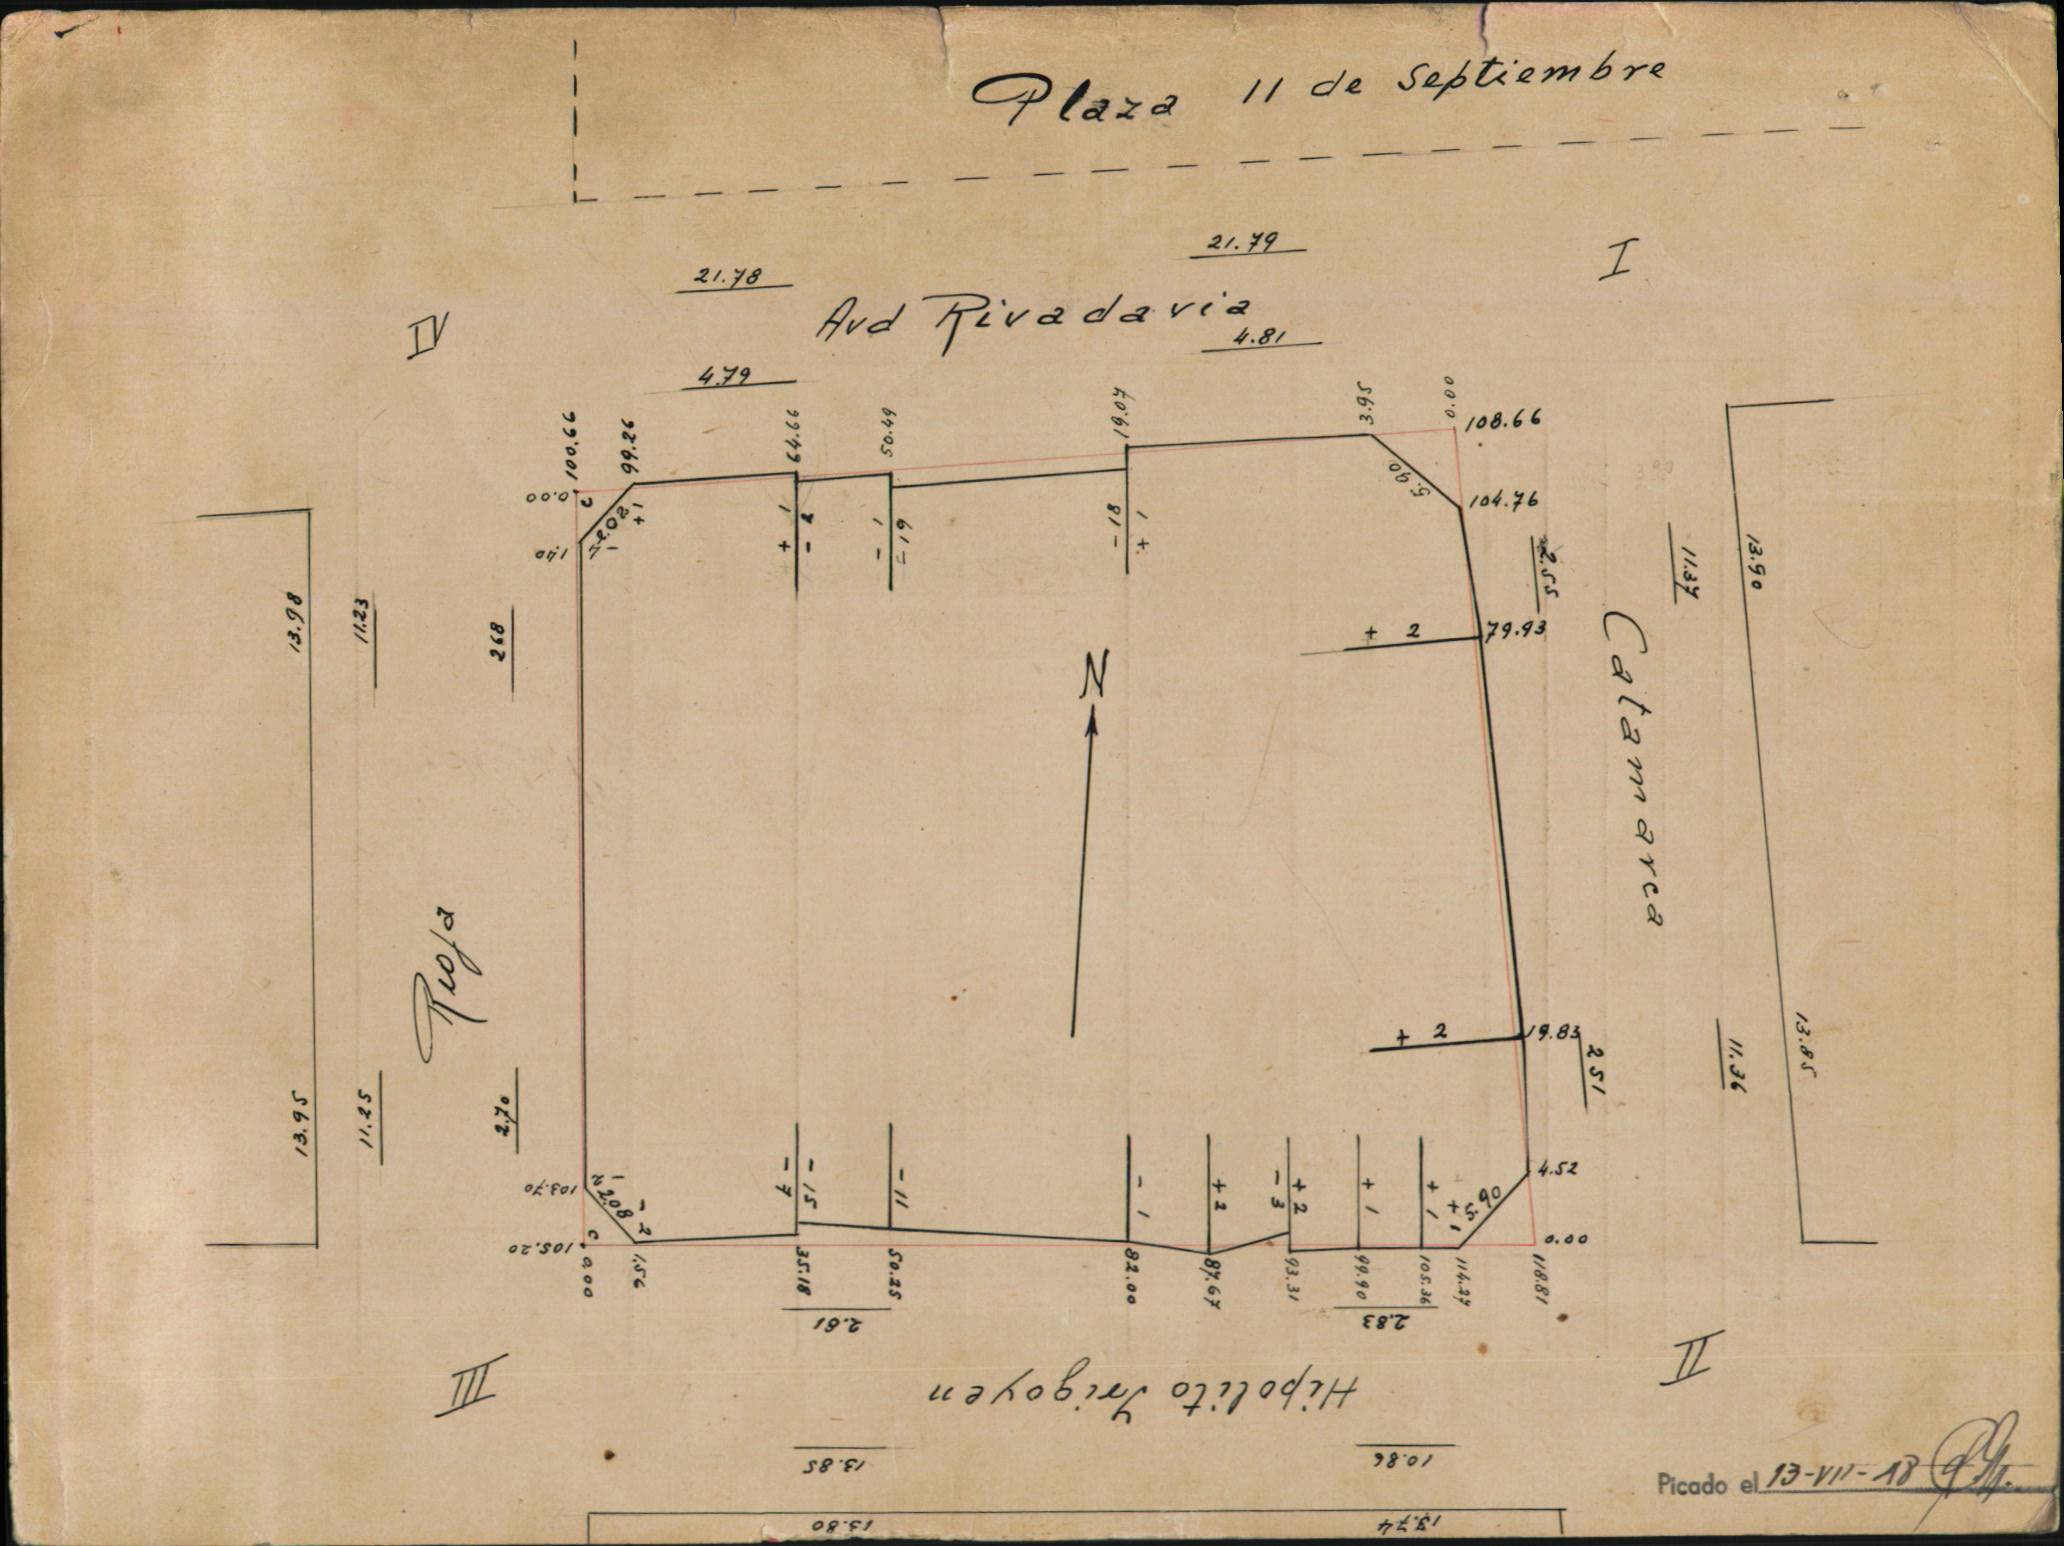 Plaza 11 de Septiembre
21.79
21.78
I
IV
Avd Rivadavia
4.81
4.79
100.66
99.26
64.66
50.49
19.07
3.95
0.00
108.66
0.00
c
2.02
+1
1.40
+ 1
- 2
- 1
- 19
- 18
+ 1
5.90
104.76
2.55
11.37
13.90
13.98
11.23
268
+ 2
79.93
N
Catamarca
Rioja
+ 2
19.83
2 51
11.36
13.85
13.95
11.25
2.70
103.70
2.08
- 2
105.20
c
0.00
1.56
- 7
- 15
35.18
- 11
50.25
- 1
82.00
+ 2
87.67
- 3
+ 2
93.31
+ 1
99.90
+ 1
105.36
+ 1
114.27
5.90
4.52
0.00
118.81
2.81
2.83
III
II
Hipolito Irigoyen
13.85
10.86
13.80
13.74
Picado el 13-VII-18